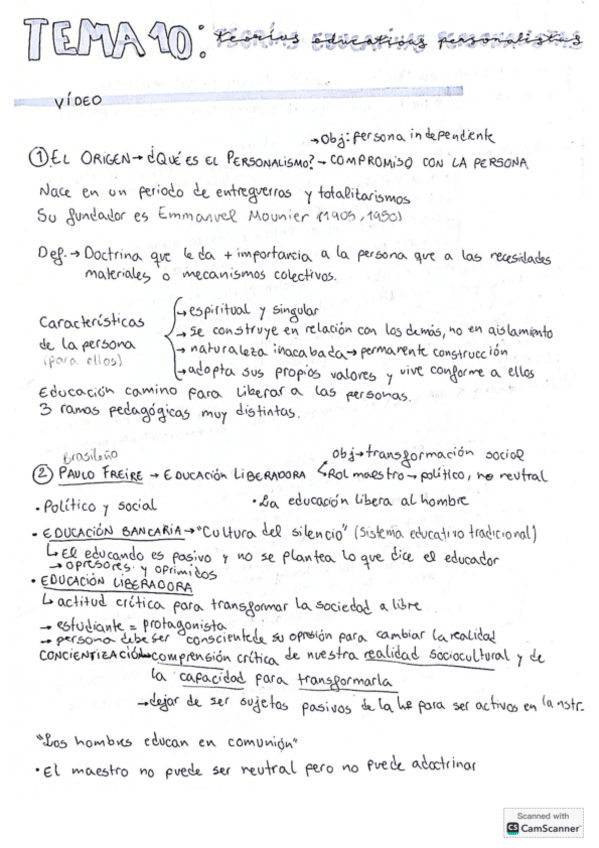 TEMA 10: teorías educativas personalistas
VÍDEO
→Obj: persona independiente
① EL ORIGEN→ ¿QUÉ ES EL PERSONALISMO?→ COMPROMISO CON LA PERSONA
Nace en un periodo de entreguerras y totalitarismos
Su fundador es Emmanuel Mounier (1905, 1950)
Def.→ Doctrina que le da + importancia a la persona que a las necesidades
materiales o mecanismos colectivos.
Características
de la persona
(para ellos)
→espiritual y singular
→ se construye en relación con los demás, no en aislamiento
→ naturaleza inacabada→ permanente construcción
→adopta sus propios valores y vive conforme a ellos
Educación camino para liberar a las personas.
3 ramas pedagógicas muy distintas.
Brasileño
obj→transformación social
② PAULO FREIRE → EDUCACIÓN LIBERADORA
Rol maestro→ político, no neutral
• Político y social
• La educación libera al hombre
• EDUCACIÓN BANCARIA→"Cultura del silencio" (Sistema educativo tradicional)
↳ El educando es pasivo y no se plantea lo que dice el educador
→ opresores y oprimidos
• EDUCACIÓN LIBERADORA
↳ actitud crítica para transformar la sociedad a libre
→ estudiante = protagonista
→ persona debe ser consciente de su opresión para cambiar la realidad
CONCIENTIZACIÓN→comprensión crítica de nuestra realidad sociocultural y de
la capacidad para transformarla
→dejar de ser sujetos pasivos de la hª para ser activos en la
"Los hombres educan en comunión"
• El maestro no puede ser neutral pero no puede adoctrinar
Scanned with
CS CamScanner